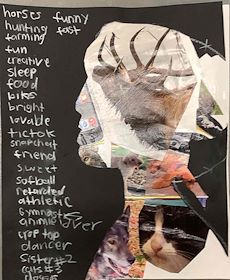 horses funny
hunting fast
farming
fun
creative
sleep
food
bikes
bright
lovable
tictok
snapchat
friend
sweet
softball
retarded
athletic
gymnastics
animal lover
crop top
dancer
sister #2